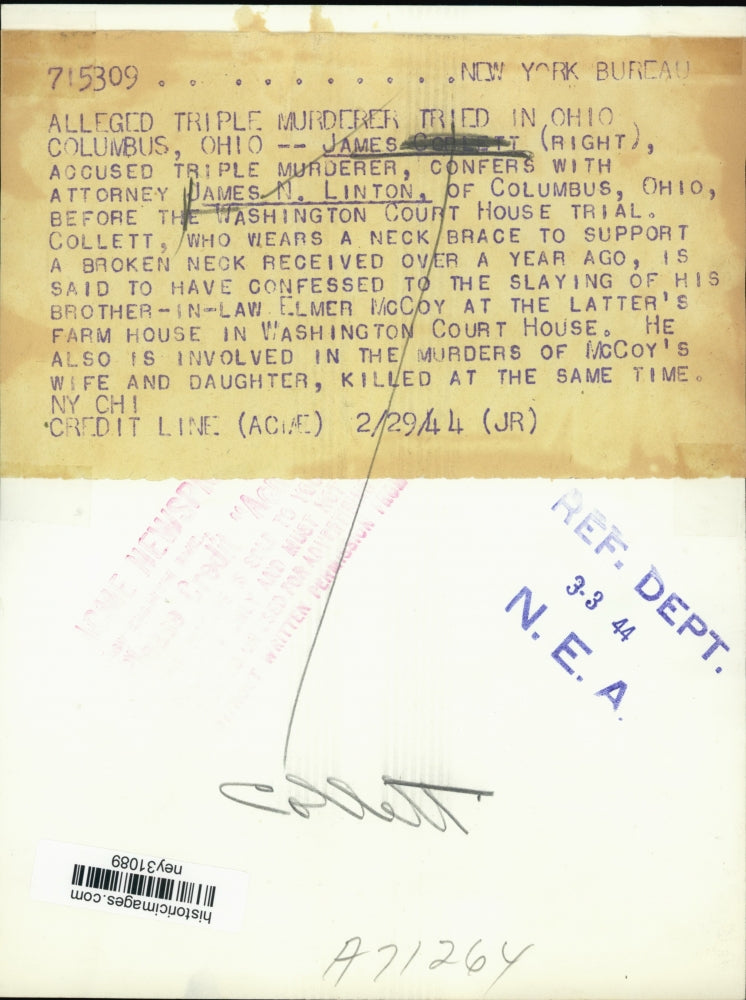 715309 . . . . . . . . . . .NEW YORK BUREAU
ALLEGED TRIPLE MURDERER TRIED IN OHIO
COLUMBUS, OHIO -- JAMES COLLETT (RIGHT),
ACCUSED TRIPLE MURDERER, CONFERS WITH
ATTORNEY JAMES N. LINTON, OF COLUMBUS, OHIO,
BEFORE THE WASHINGTON COURT HOUSE TRIAL.
COLLETT, WHO WEARS A NECK BRACE TO SUPPORT
A BROKEN NECK RECEIVED OVER A YEAR AGO, IS
SAID TO HAVE CONFESSED TO THE SLAYING OF HIS
BROTHER-IN-LAW ELMER MCCOY AT THE LATTER'S
FARM HOUSE IN WASHINGTON COURT HOUSE. HE
ALSO IS INVOLVED IN THE MURDERS OF MCCOY'S
WIFE AND DAUGHTER, KILLED AT THE SAME TIME.
NY CHI
CREDIT LINE (ACME) 2/29/44 (JR)
ACME
Credit "AC
IS SOLD TO
AND MUST NOT
USED FOR
WRITTEN PERMISSION FROM
REF. DEPT.
3-3 44
N. E. A.
Collett
historicimages.com
ney31089
A71264